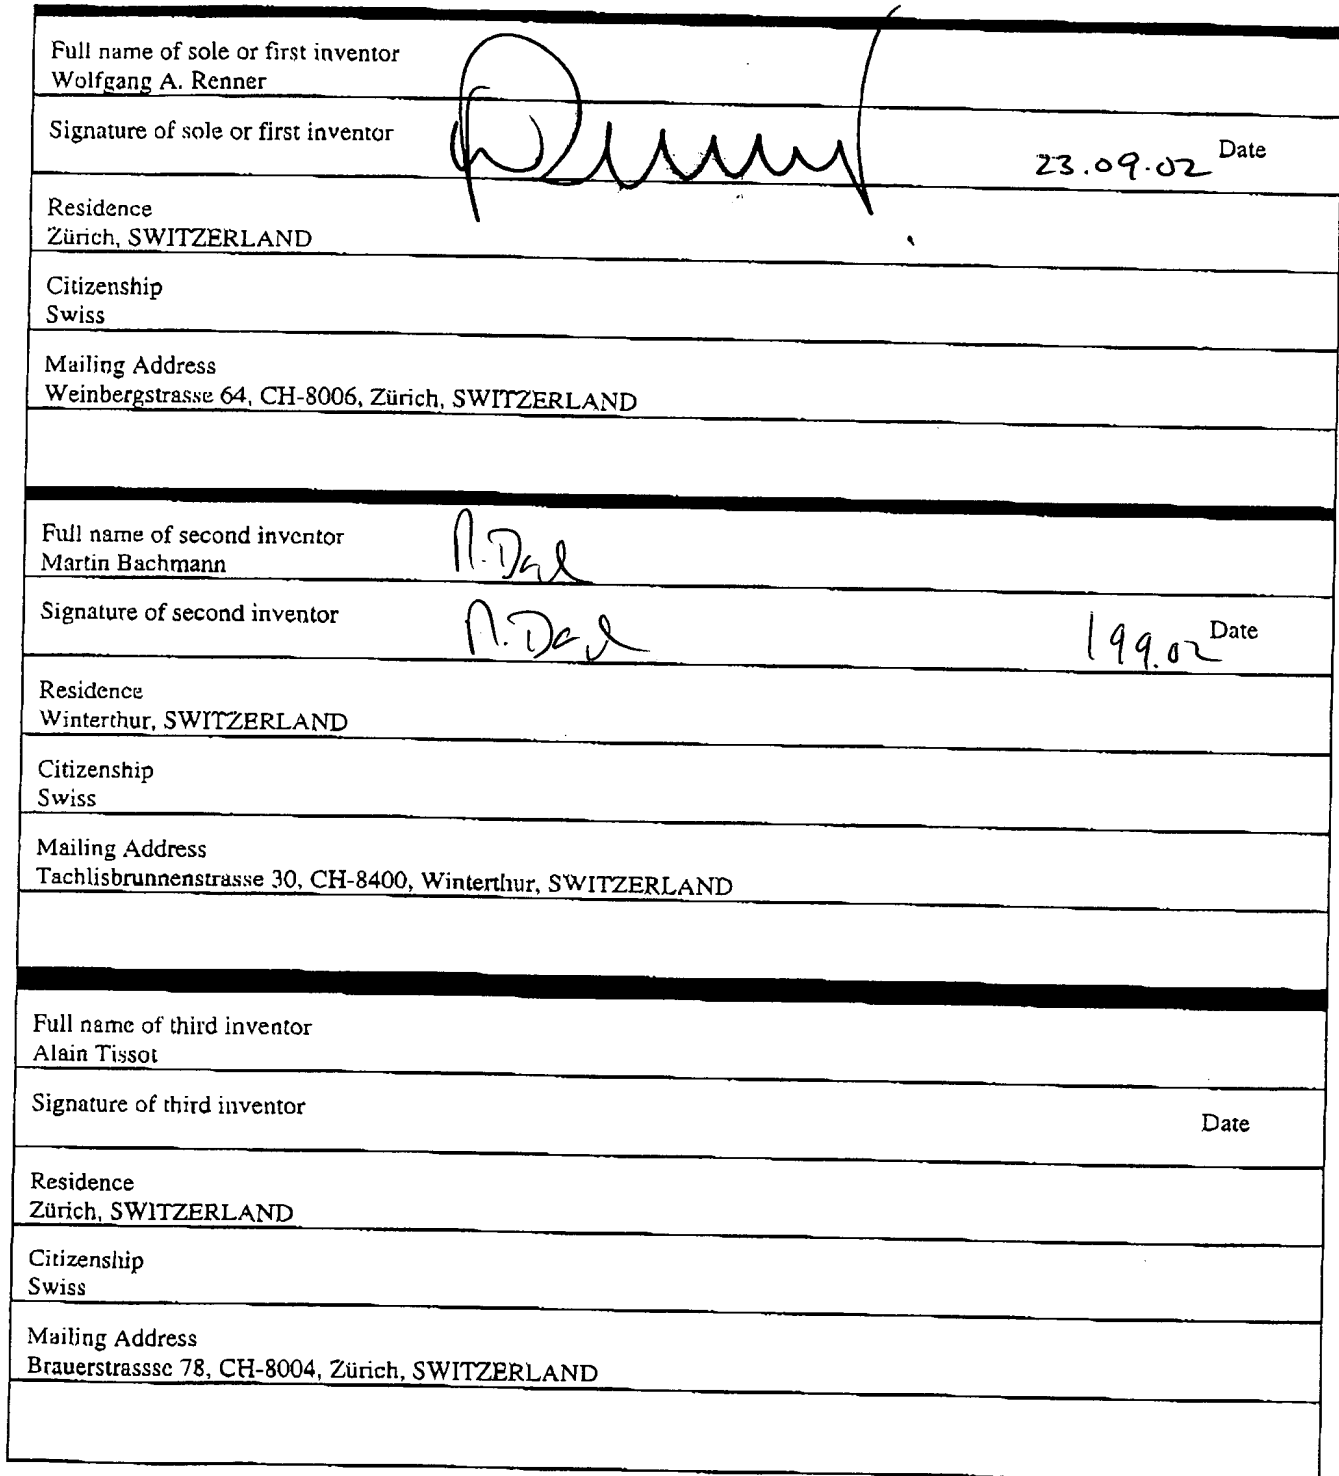 Full name of sole or first inventor
Wolfgang A. Renner
Signature of sole or first inventor
23.09.02 Date
Residence
Zürich, SWITZERLAND
Citizenship
Swiss
Mailing Address
Weinbergstrasse 64, CH-8006, Zürich, SWITZERLAND
Full name of second inventor
Martin Bachmann
Signature of second inventor
199.02 Date
Residence
Winterthur, SWITZERLAND
Citizenship
Swiss
Mailing Address
Tachlisbrunnenstrasse 30, CH-8400, Winterthur, SWITZERLAND
Full name of third inventor
Alain Tissot
Signature of third inventor
Date
Residence
Zürich, SWITZERLAND
Citizenship
Swiss
Mailing Address
Brauerstrassse 78, CH-8004, Zürich, SWITZERLAND